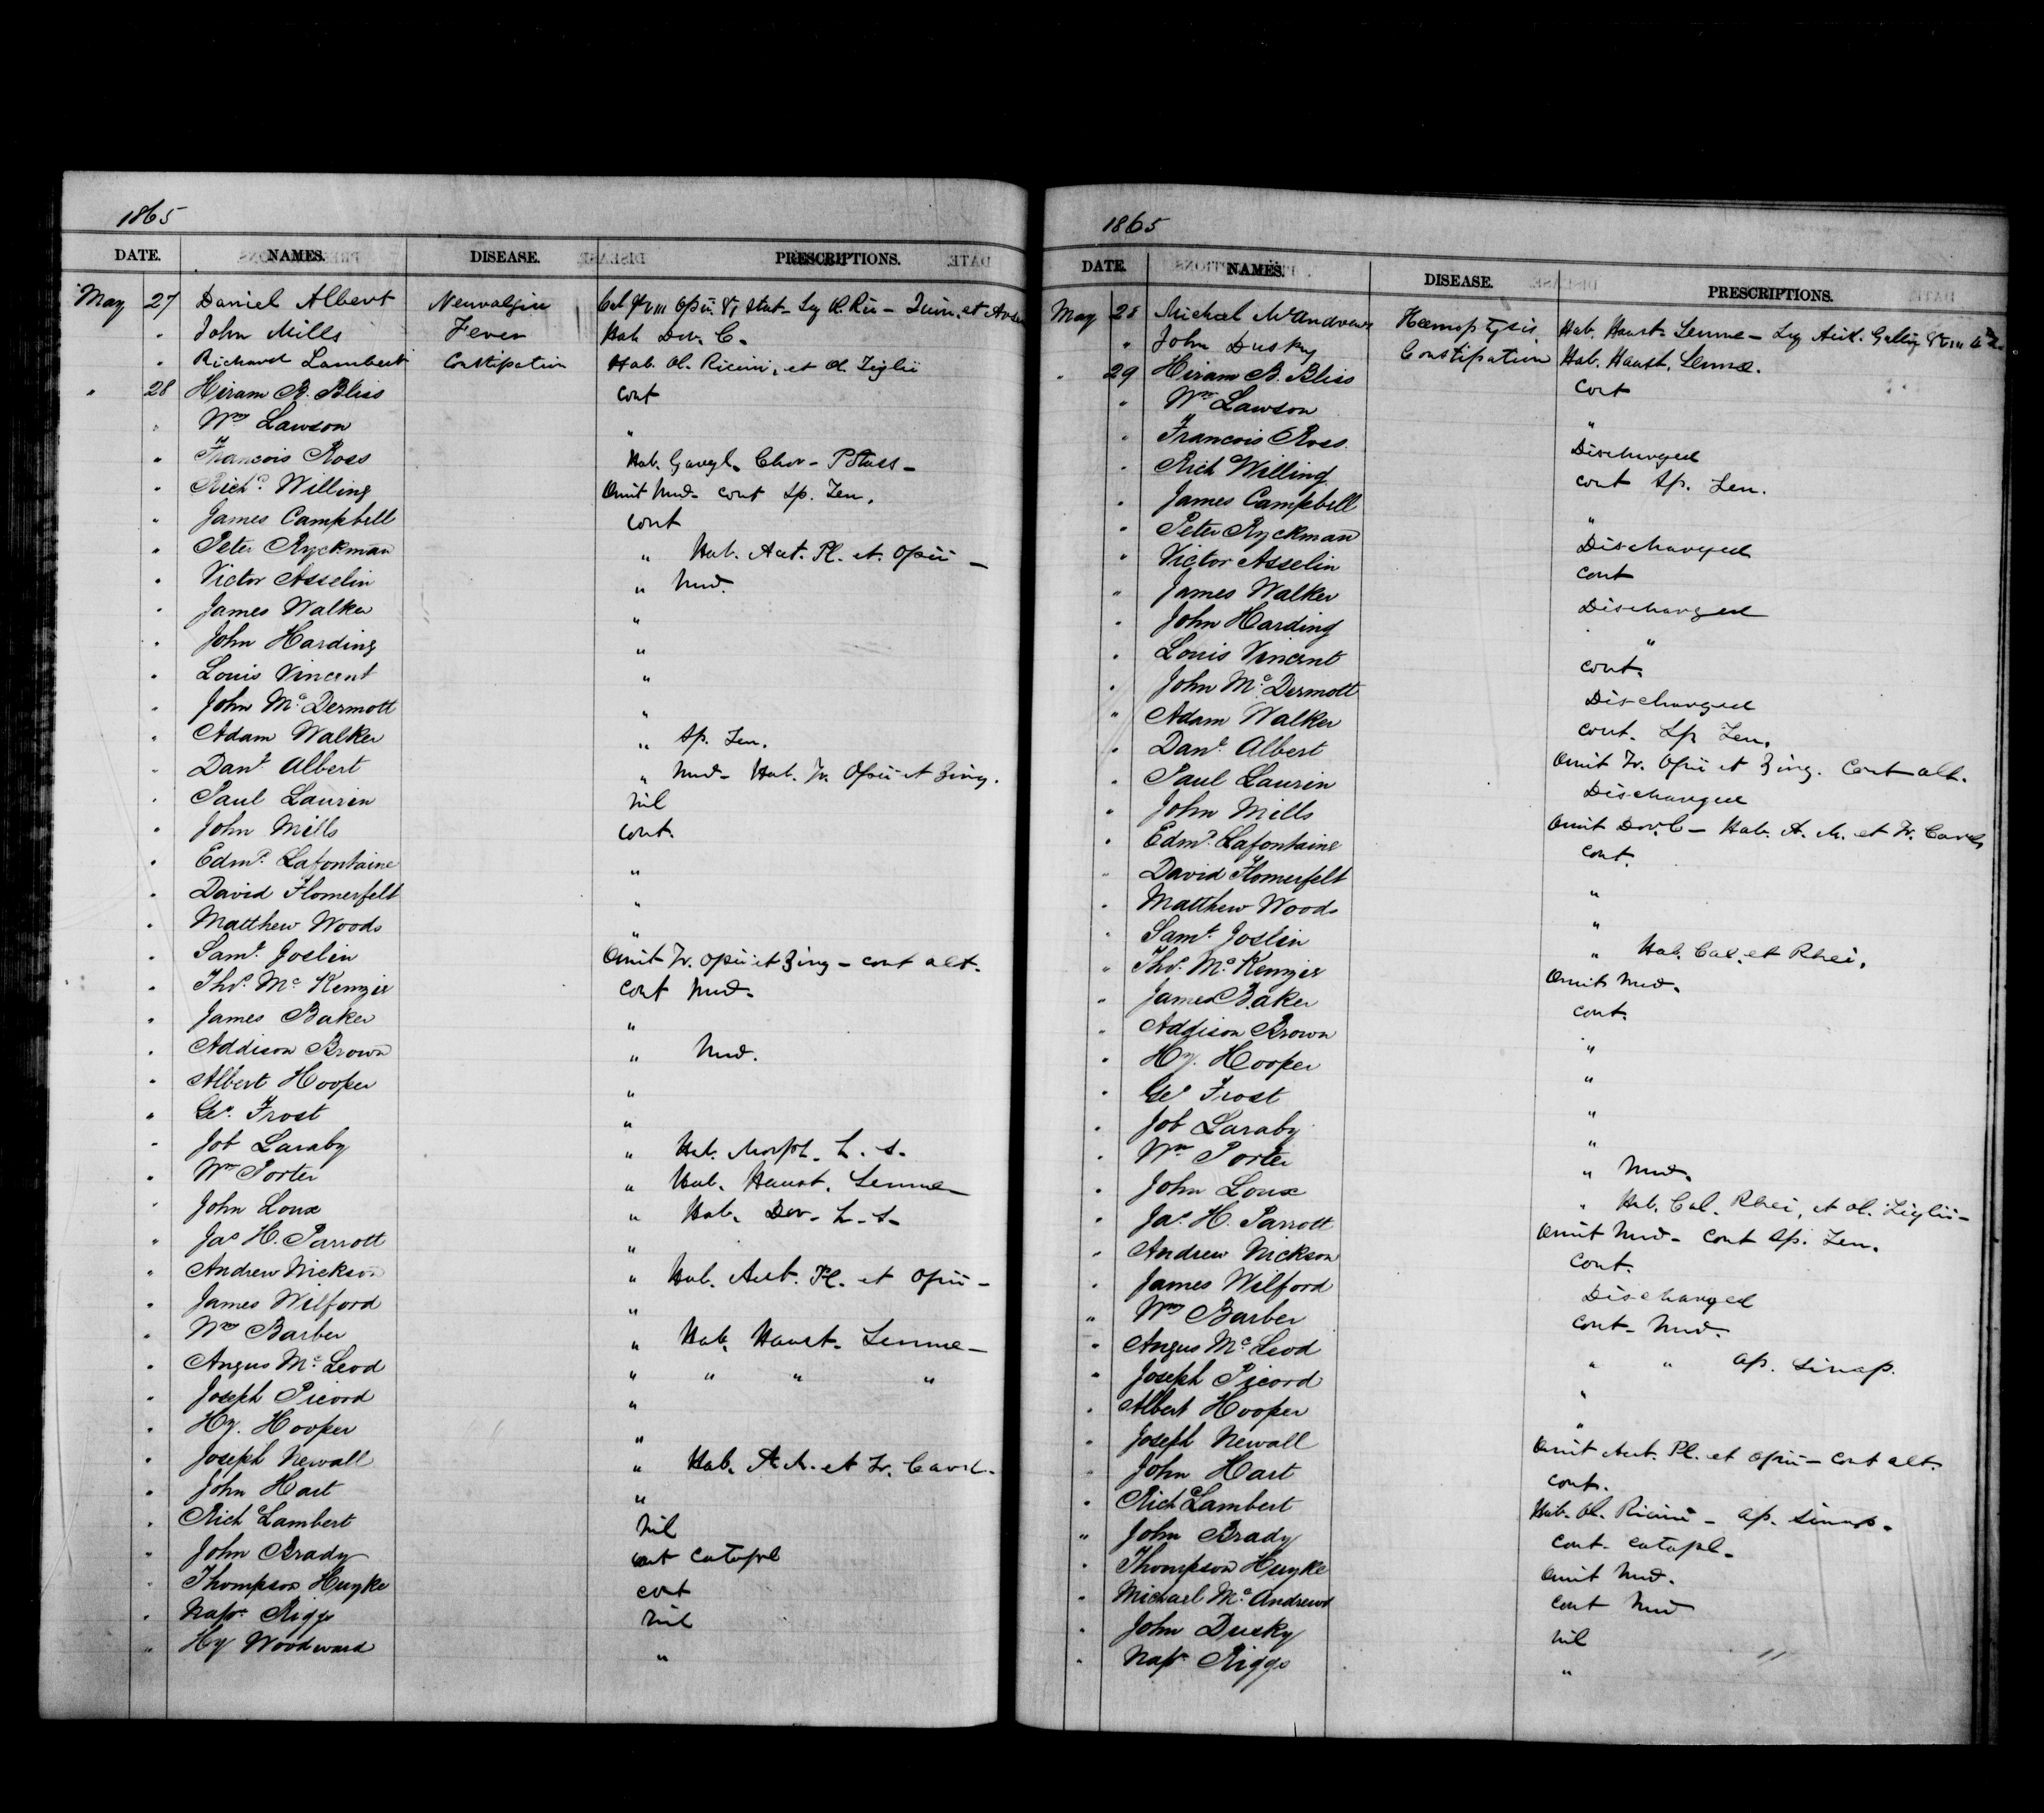 1865
DATE. NAMES. DISEASE. PRESCRIPTIONS.
May 27 Daniel Albert Neuralgia Cal gr VIII Opii. gr I Stat - Quin. et
" John Mills Fever Hab Dov. C.
" Richard Lambert Constipation Hab. Ol. Ricini, et Ol. Tiglii
" 28 Hiram B. Bliss cont
" Wm Lawson "
" Francois Ross Hab. Gargl. Chlor - Potass -
" Richd Willing Omit Med - cont Sp. Len.
" James Campbell cont
" Peter Ryckman " Hab. Acet. Pl. et. Opii -
" Victor Asselin " Med.
" James Walker "
" John Harding "
" Louis Vincent "
" John McDermott "
" Adam Walker " Sp. Len.
" Danl Albert " Med - Hab. Tr. Opii et Zing.
" Paul Laurin Nil
" John Mills cont.
" Edmd Lafontaine "
" David Flomerfelt "
" Matthew Woods "
" Saml Joslin Omit Tr. Opii et Zing - cont alt.
" Thos McKenzie cont Med.
" James Baker "
" Addison Brown " Med.
" Albert Hooper "
" Geo Frost "
" Job Laraby " Hab. Morph. h. s.
" Wm Porter " Hab. Haust. Sennæ -
" John Loux " Hab. Dov. h. s.
" Jas H. Parrott "
" Andrew Nickson " Hab. Acet. Pl. et Opii -
" James Wilford "
" Wm Barber " Hab. Haust. Sennæ -
" Angus McLeod " " " "
" Joseph Picord "
" Hy. Hooper "
" Joseph Newall " Hab. A. A. et Tr. Card.
" John Hart "
" Rich Lambert Nil
" John Brady cont Catapl
" Thompson Huyke cont
" Napn Riggs Nil
" Hy Woodward "
1865
DATE. NAMES. DISEASE. PRESCRIPTIONS.
May 28 Michael McAndrews Hæmoptysis Hab. Haust. Sennæ -
" John Dusky Constipation Hab. Haust. Sennæ.
" 29 Hiram B. Bliss cont
" Wm Lawson "
" Francois Ross. Discharged
" Rich Willing cont Sp. Len.
" James Campbell "
" Peter Ryckman Discharged
" Victor Asselin cont
" James Walker Discharged
" John Harding "
" Louis Vincent cont.
" John McDermott Discharged
" Adam Walker cont. Sp Len.
" Danl Albert Omit Tr. Opii et Zing. Cont alt.
" Paul Laurin Discharged
" John Mills Omit Dov. C - Hab. A. A. et Tr. Card.
" Edmd Lafontaine cont.
" David Flomerfelt "
" Matthew Woods "
" Saml Joslin " Hab. Cal. et Rhei.
" Thos McKenzie Omit Med.
" James Baker cont.
" Addison Brown "
" Hy. Hooper "
" Geo Frost "
" Job Laraby "
" Wm Porter " Med.
" John Loux " Hab. Cal. Rhei, et Ol. Tiglii -
" Jas H. Parrott Omit Med - Cont Sp. Len.
" Andrew Nickson Cont.
" James Wilford Discharged
" Wm Barber cont - Med.
" Angus McLeod " " Ap. Sinap.
" Joseph Picord "
" Albert Hooper "
" Joseph Newall Omit Acet. Pl. et Opii - Cont alt.
" John Hart cont.
" Rich Lambert Hab. Ol. Ricini - Ap. Sinap.
" John Brady Cont. Catapl.
" Thompson Huyke Omit Med.
" Michael McAndrews Cont Med
" John Dusky Nil
" Napn Riggs "